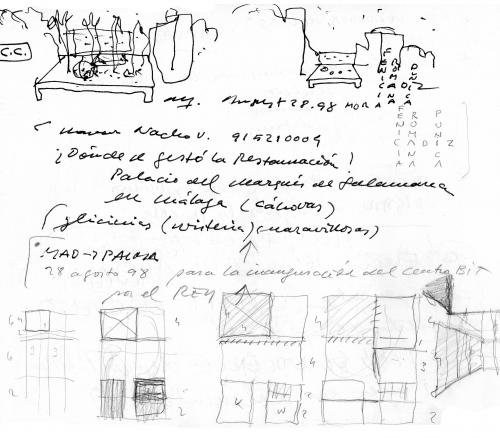 C.C.
FENICIA ROMA CADIZ PUNICA
28.98 MORA
FENICIA ROMINA CADIZ PUNICA
llamar Nacho V. 915210004
¡Dónde se gestó la Restauración!
Palacio del marqués de Salamanca
en málaga (cánovas)
glicinias (wisteria) (maravillosas)
MAD-PALMA
28 agosto 98 para la inauguración del Centro BIT
por el REY
6 4 4 4 4
3 3 1
4 3
2 2 K W 2 2